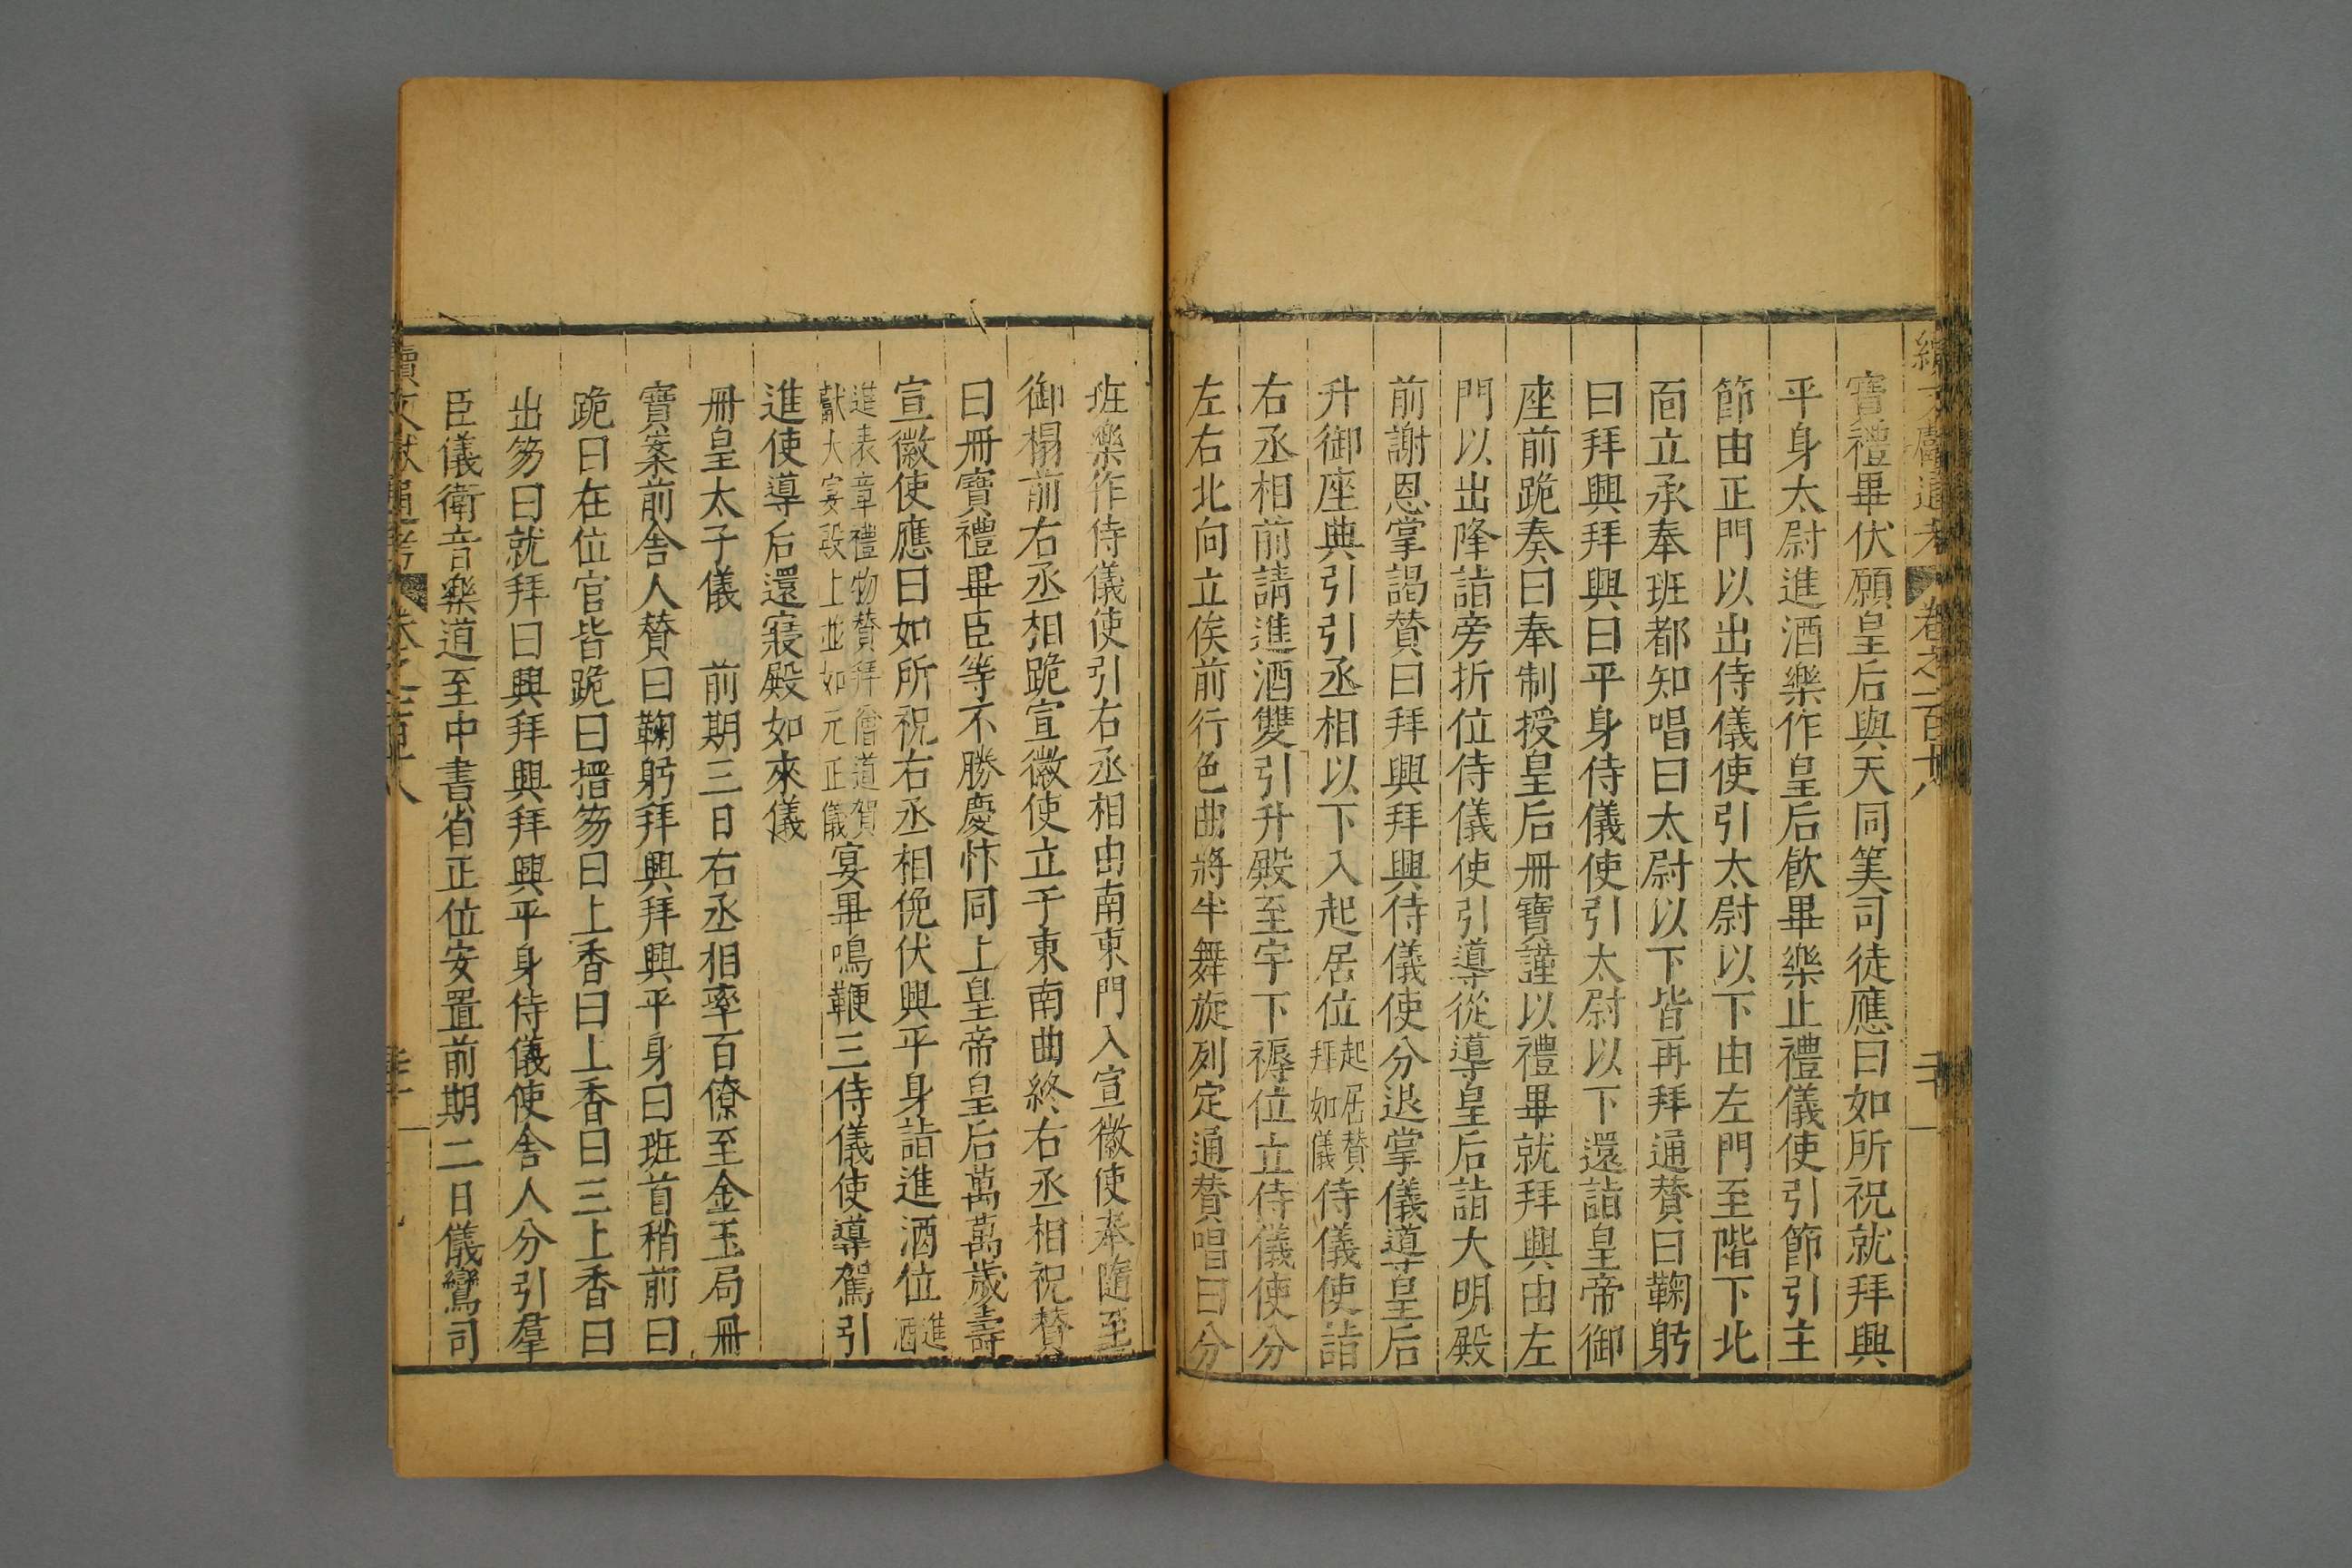 續文獻通考 卷之一百十八
寶禮畢伏願皇后與天同筭司徒應曰如所祝就拜興
平身太尉進酒樂作皇后飲畢樂止禮儀使引節引主
節由正門以出侍儀使引太尉以下由左門至階下北
靣立承奉班都知唱曰太尉以下皆再拜通賛曰鞠躬
曰拜興拜興曰平身侍儀使引太尉以下還詣皇帝御
座前跪奏曰奉制授皇后冊寶謹以禮畢就拜興由左
門以出降詣旁折位侍儀使引導從導皇后詣大明殿
前謝恩掌謁賛曰拜興拜興侍儀使分退掌儀導皇后
升御座典引引丞相以下入起居位起居賛拜如儀侍儀使詣
右丞相前請進酒雙引升殿至宇下褥位立侍儀使分
左右北向立俟前行色曲將半舞旋列定通賛唱曰分
班樂作侍儀使引右丞相由南東門入宣徽使奉隨至
御榻前右丞相跪宣徽使立于東南曲終右丞相祝賛
曰冊寶禮畢臣等不勝慶忭同上皇帝皇后萬萬歲壽
宣徽使應曰如所祝右丞相俛伏興平身詣進酒位進酒
進表章禮物賛拜僧道賀獻大宴殿上並如元正儀宴畢鳴鞭三侍儀使導駕引
進使導后還寢殿如來儀
冊皇太子儀 前期三日右丞相率百僚至金玉局冊
寶案前舍人賛曰鞠躬拜興拜興平身曰班首稍前曰
跪曰在位官皆跪曰搢笏曰上香曰上香曰三上香曰
出笏曰就拜曰興拜興拜興平身侍儀使舍人分引羣
臣儀衛音樂道至中書省正位安置前期二日儀鸞司
續文獻通考 卷之一百十八